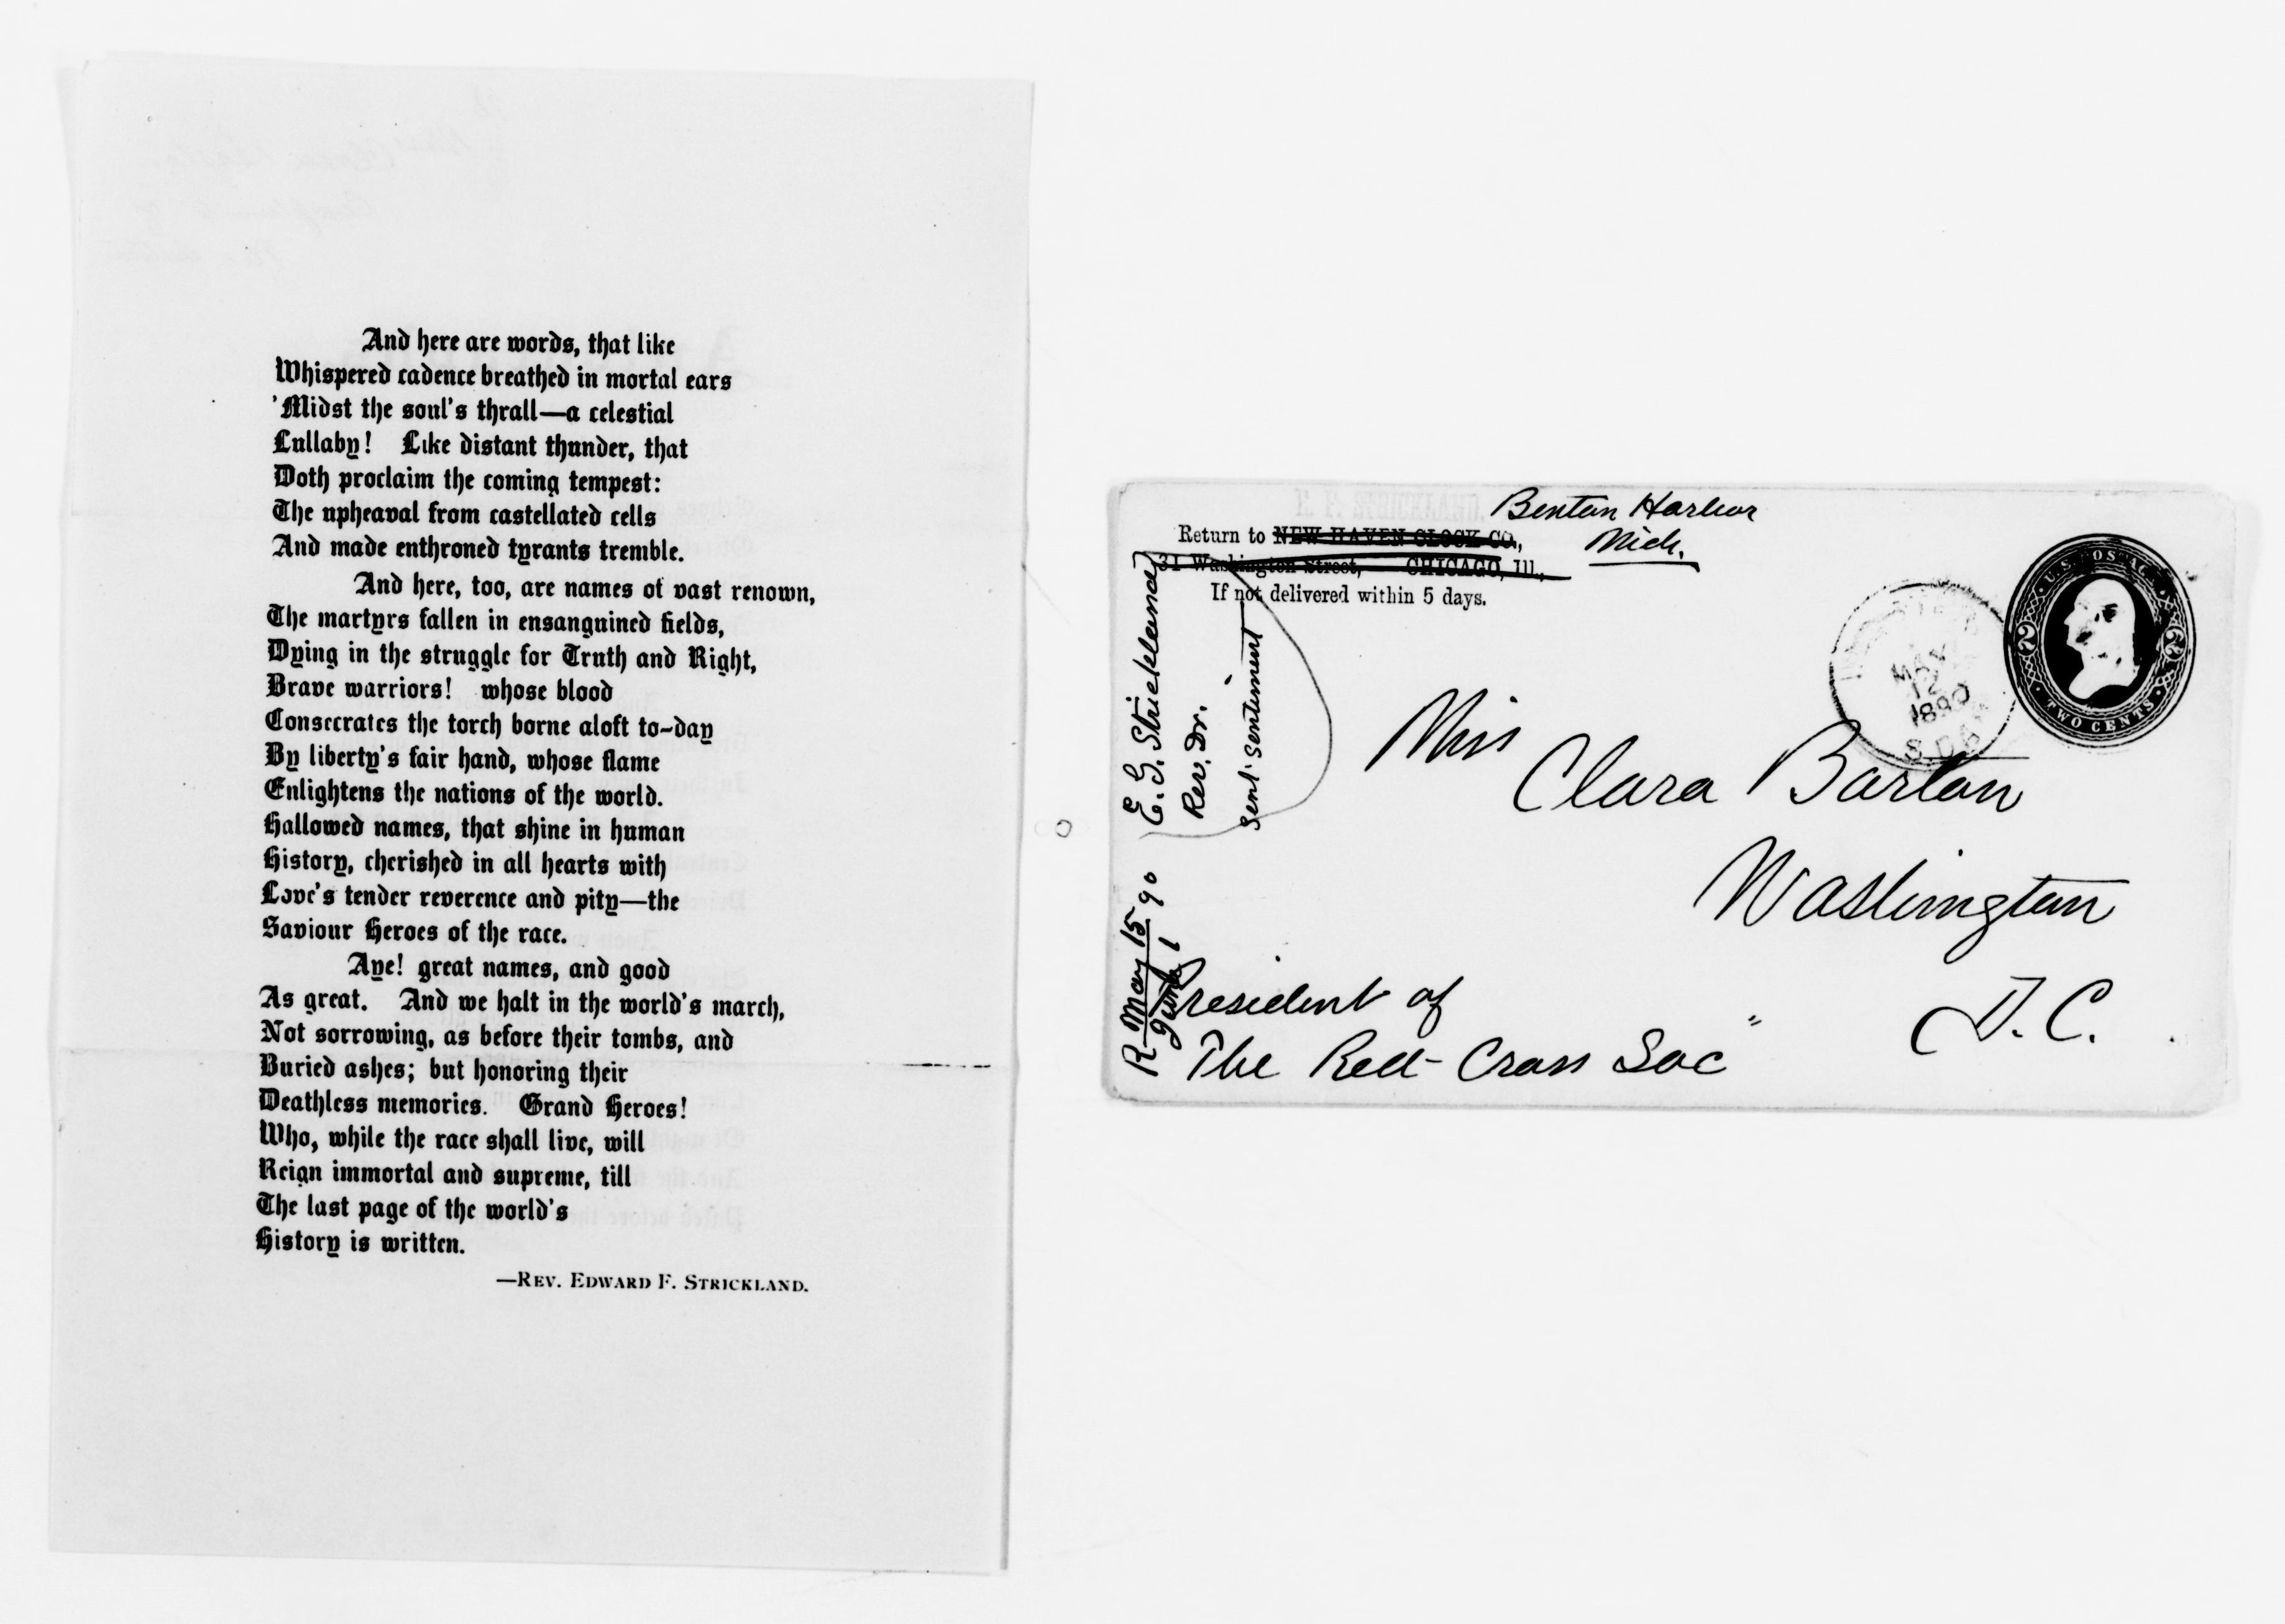 And here are words, that like
Whispered cadence breathed in mortal ears
'Midst the soul's thrall—a celestial
Lullaby! Like distant thunder, that
Doth proclaim the coming tempest:
The upheaval from castellated cells
And made enthroned tyrants tremble.
And here, too, are names of vast renown,
The martyrs fallen in ensanguined fields,
Dying in the struggle for Truth and Right,
Brave warriors! whose blood
Consecrates the torch borne aloft to-day
By liberty's fair hand, whose flame
Enlightens the nations of the world.
Hallowed names, that shine in human
History, cherished in all hearts with
Love's tender reverence and pity—the
Saviour Heroes of the race.
Aye! great names, and good
As great. And we halt in the world's march,
Not sorrowing, as before their tombs, and
Buried ashes; but honoring their
Deathless memories. Grand Heroes!
Who, while the race shall live, will
Reign immortal and supreme, till
The last page of the world's
History is written.
—REV. EDWARD F. STRICKLAND.
E. F. STRICKLAND.
Benton Harbor
Mich.
Return to NEW HAVEN CLOCK CO.,
31 Washington Street, CHICAGO, Ill.,
If not delivered within 5 days.
U.S. POSTAGE
2 2
TWO CENTS
MAY
12
1890
Miss
Clara Barton
Washington
D. C.
President of
The Red Cross Soc"
E. G. Strickland
Rev. Dr.
Sent sentiment
R— May 15 90
June 1